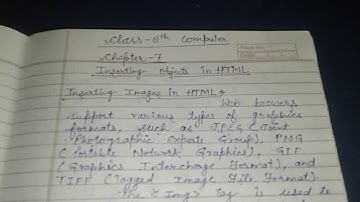 Class-8th Computer
Chapter-7
Inserting Objects in HTML
Inserting Images in HTML→
Web bowers
support various types of graphics
formats, such as JPEG (Joint
Photographic Experts Group), PNG
(Portable Network Graphics), GIF
(Graphics Interchange Format), and
TIFF (Tagged Image File Format).
The <Img> tag is used to